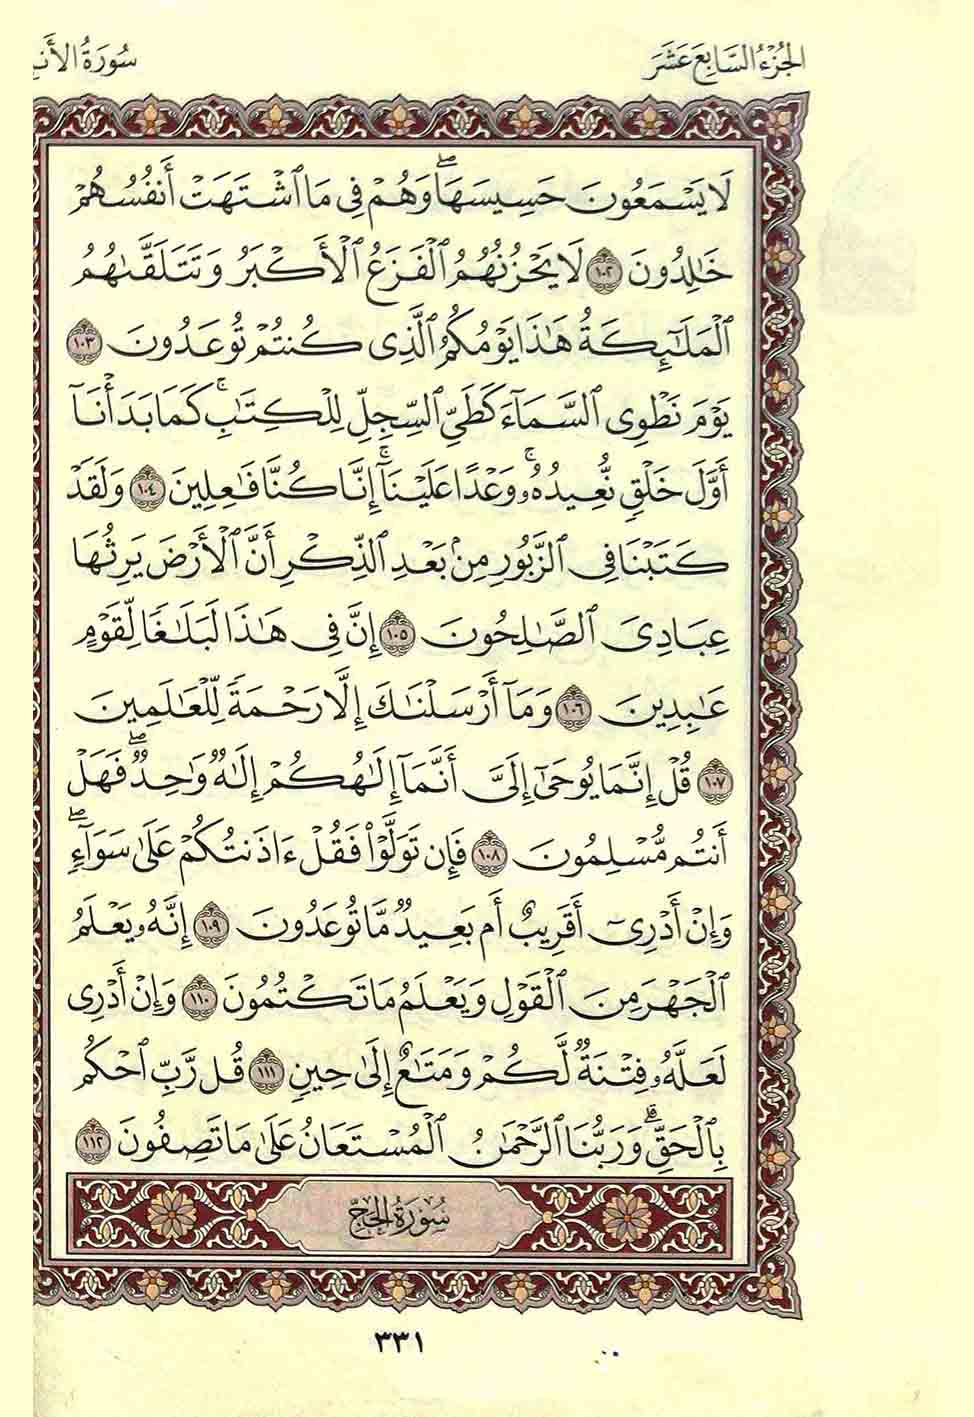 الجُزْءُ السَّابِعَ عَشَرَ
سُورَةُ الأَنبِ
لَا يَسْمَعُونَ حَسِيسَهَاۖ وَهُمْ فِي مَا ٱشْتَهَتْ أَنفُسُهُمْ
خَٰلِدُونَ ١٠٢ لَا يَحْزُنُهُمُ ٱلْفَزَعُ ٱلْأَكْبَرُ وَتَتَلَقَّىٰهُمُ
ٱلْمَلَٰٓئِكَةُ هَٰذَا يَوْمُكُمُ ٱلَّذِى كُنتُمْ تُوعَدُونَ ١٠٣
يَوْمَ نَطْوِى ٱلسَّمَآءَ كَطَيِّ ٱلسِّجِلِّ لِلْكِتَٰبِۚ كَمَا بَدَأْنَآ
أَوَّلَ خَلْقٍ نُّعِيدُهُۥۚ وَعْدًا عَلَيْنَآۚ إِنَّا كُنَّا فَٰعِلِينَ ١٠٤ وَلَقَدْ
كَتَبْنَا فِى ٱلزَّبُورِ مِنۢ بَعْدِ ٱلذِّكْرِ أَنَّ ٱلْأَرْضَ يَرِثُهَا
عِبَادِىَ ٱلصَّٰلِحُونَ ١٠٥ إِنَّ فِى هَٰذَا لَبَلَٰغًا لِّقَوْمٍ
عَٰبِدِينَ ١٠٦ وَمَآ أَرْسَلْنَٰكَ إِلَّا رَحْمَةً لِّلْعَٰلَمِينَ
١٠٧ قُلْ إِنَّمَا يُوحَىٰٓ إِلَىَّ أَنَّمَآ إِلَٰهُكُمْ إِلَٰهٌ وَٰحِدٌۖ فَهَلْ
أَنتُم مُّسْلِمُونَ ١٠٨ فَإِن تَوَلَّوْا۟ فَقُلْ ءَاذَنتُكُمْ عَلَىٰ سَوَآءٍۖ
وَإِنْ أَدْرِىٓ أَقَرِيبٌ أَم بَعِيدٌ مَّا تُوعَدُونَ ١٠٩ إِنَّهُۥ يَعْلَمُ
ٱلْجَهْرَ مِنَ ٱلْقَوْلِ وَيَعْلَمُ مَا تَكْتُمُونَ ١١٠ وَإِنْ أَدْرِى
لَعَلَّهُۥ فِتْنَةٌ لَّكُمْ وَمَتَٰعٌ إِلَىٰ حِينٍ ١١١ قُل رَّبِّ ٱحْكُم
بِٱلْحَقِّۗ وَرَبُّنَا ٱلرَّحْمَٰنُ ٱلْمُسْتَعَانُ عَلَىٰ مَا تَصِفُونَ ١١٢
سُورَةُ الحَجّ
٣٣١